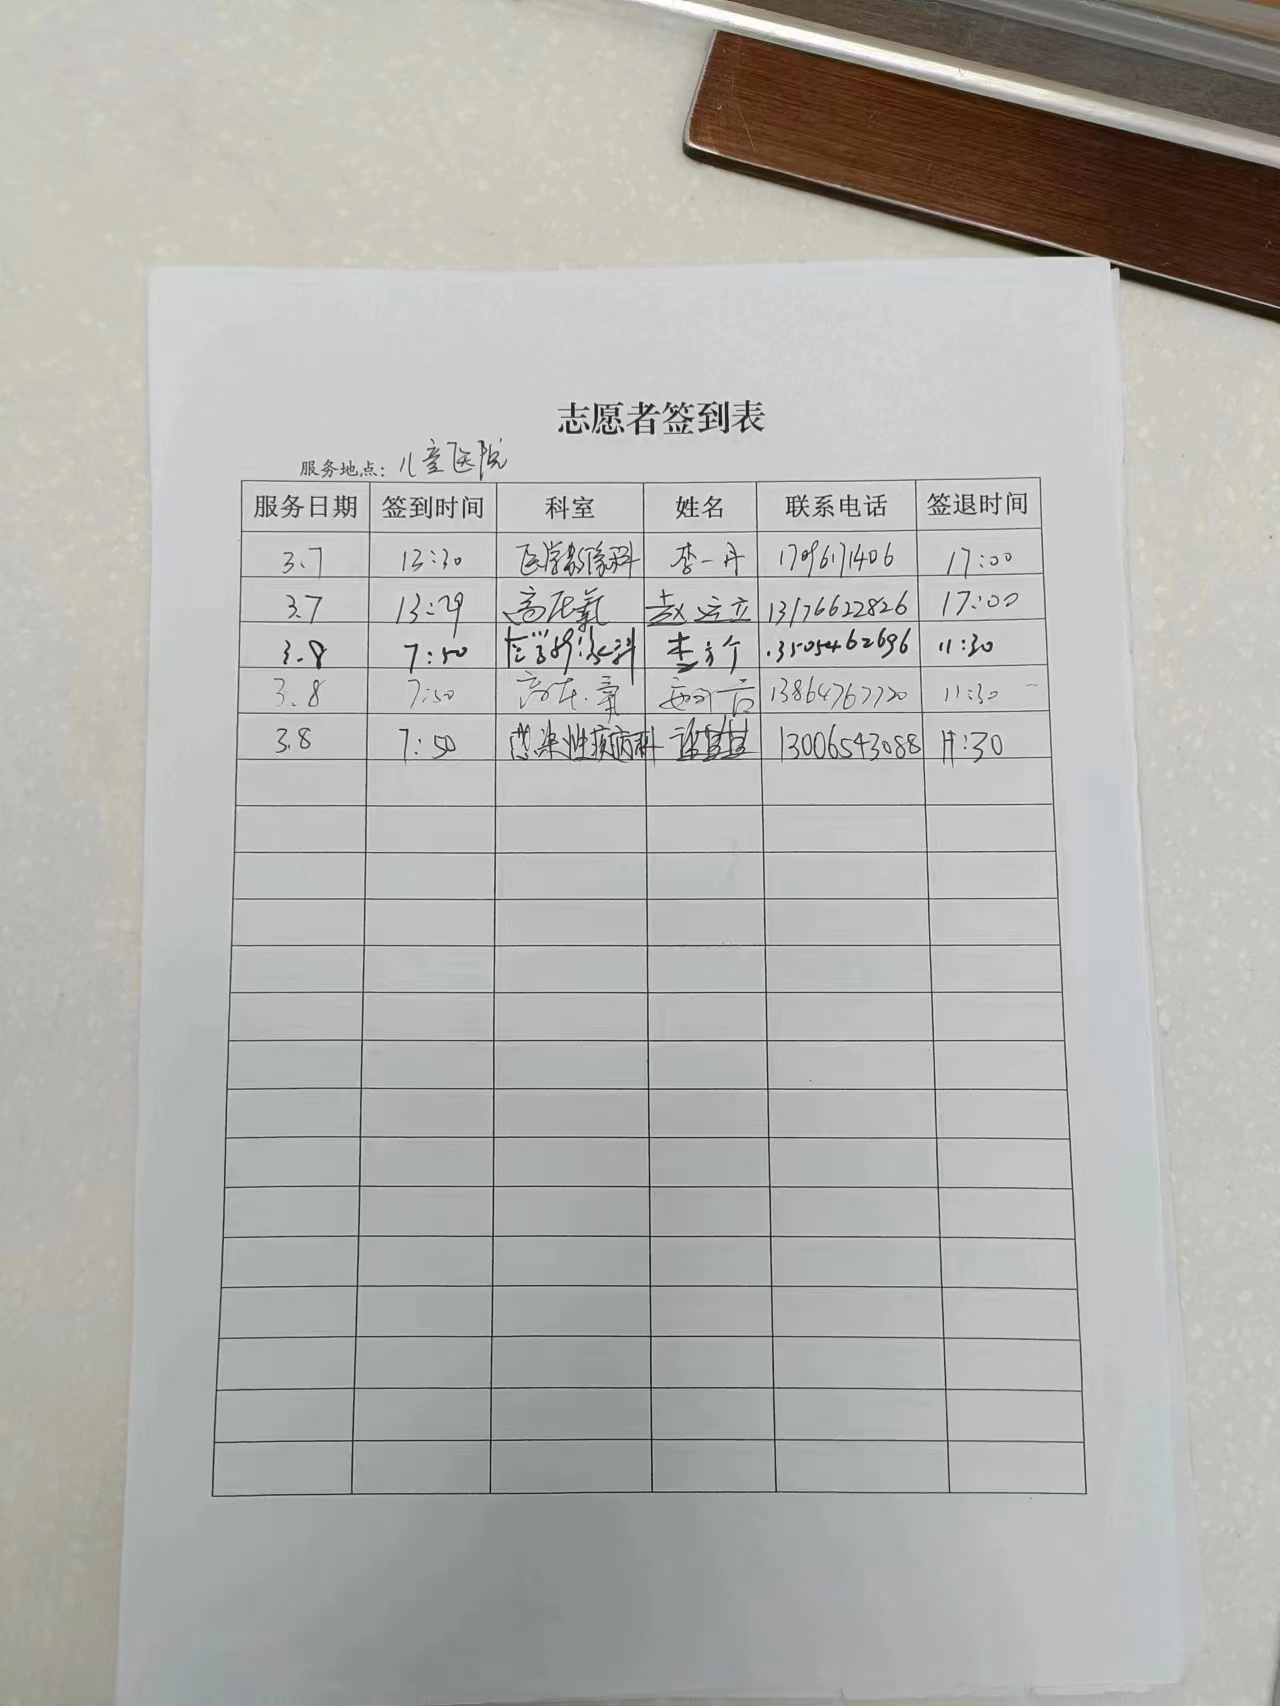 志愿者签到表
服务地点：儿童医院
服务日期 签到时间 科室 姓名 联系电话 签退时间
3.7 13:30 医学影像科 李一丹 17:00
3.7 13:29 高压氧 赵 13176622826 17:00
3.8 7:50 李 13505462696 11:30
3.8 7:50 高压氧 13864767720 11:30
3.8 7:50 感染性疾病科 13006543088 11:30